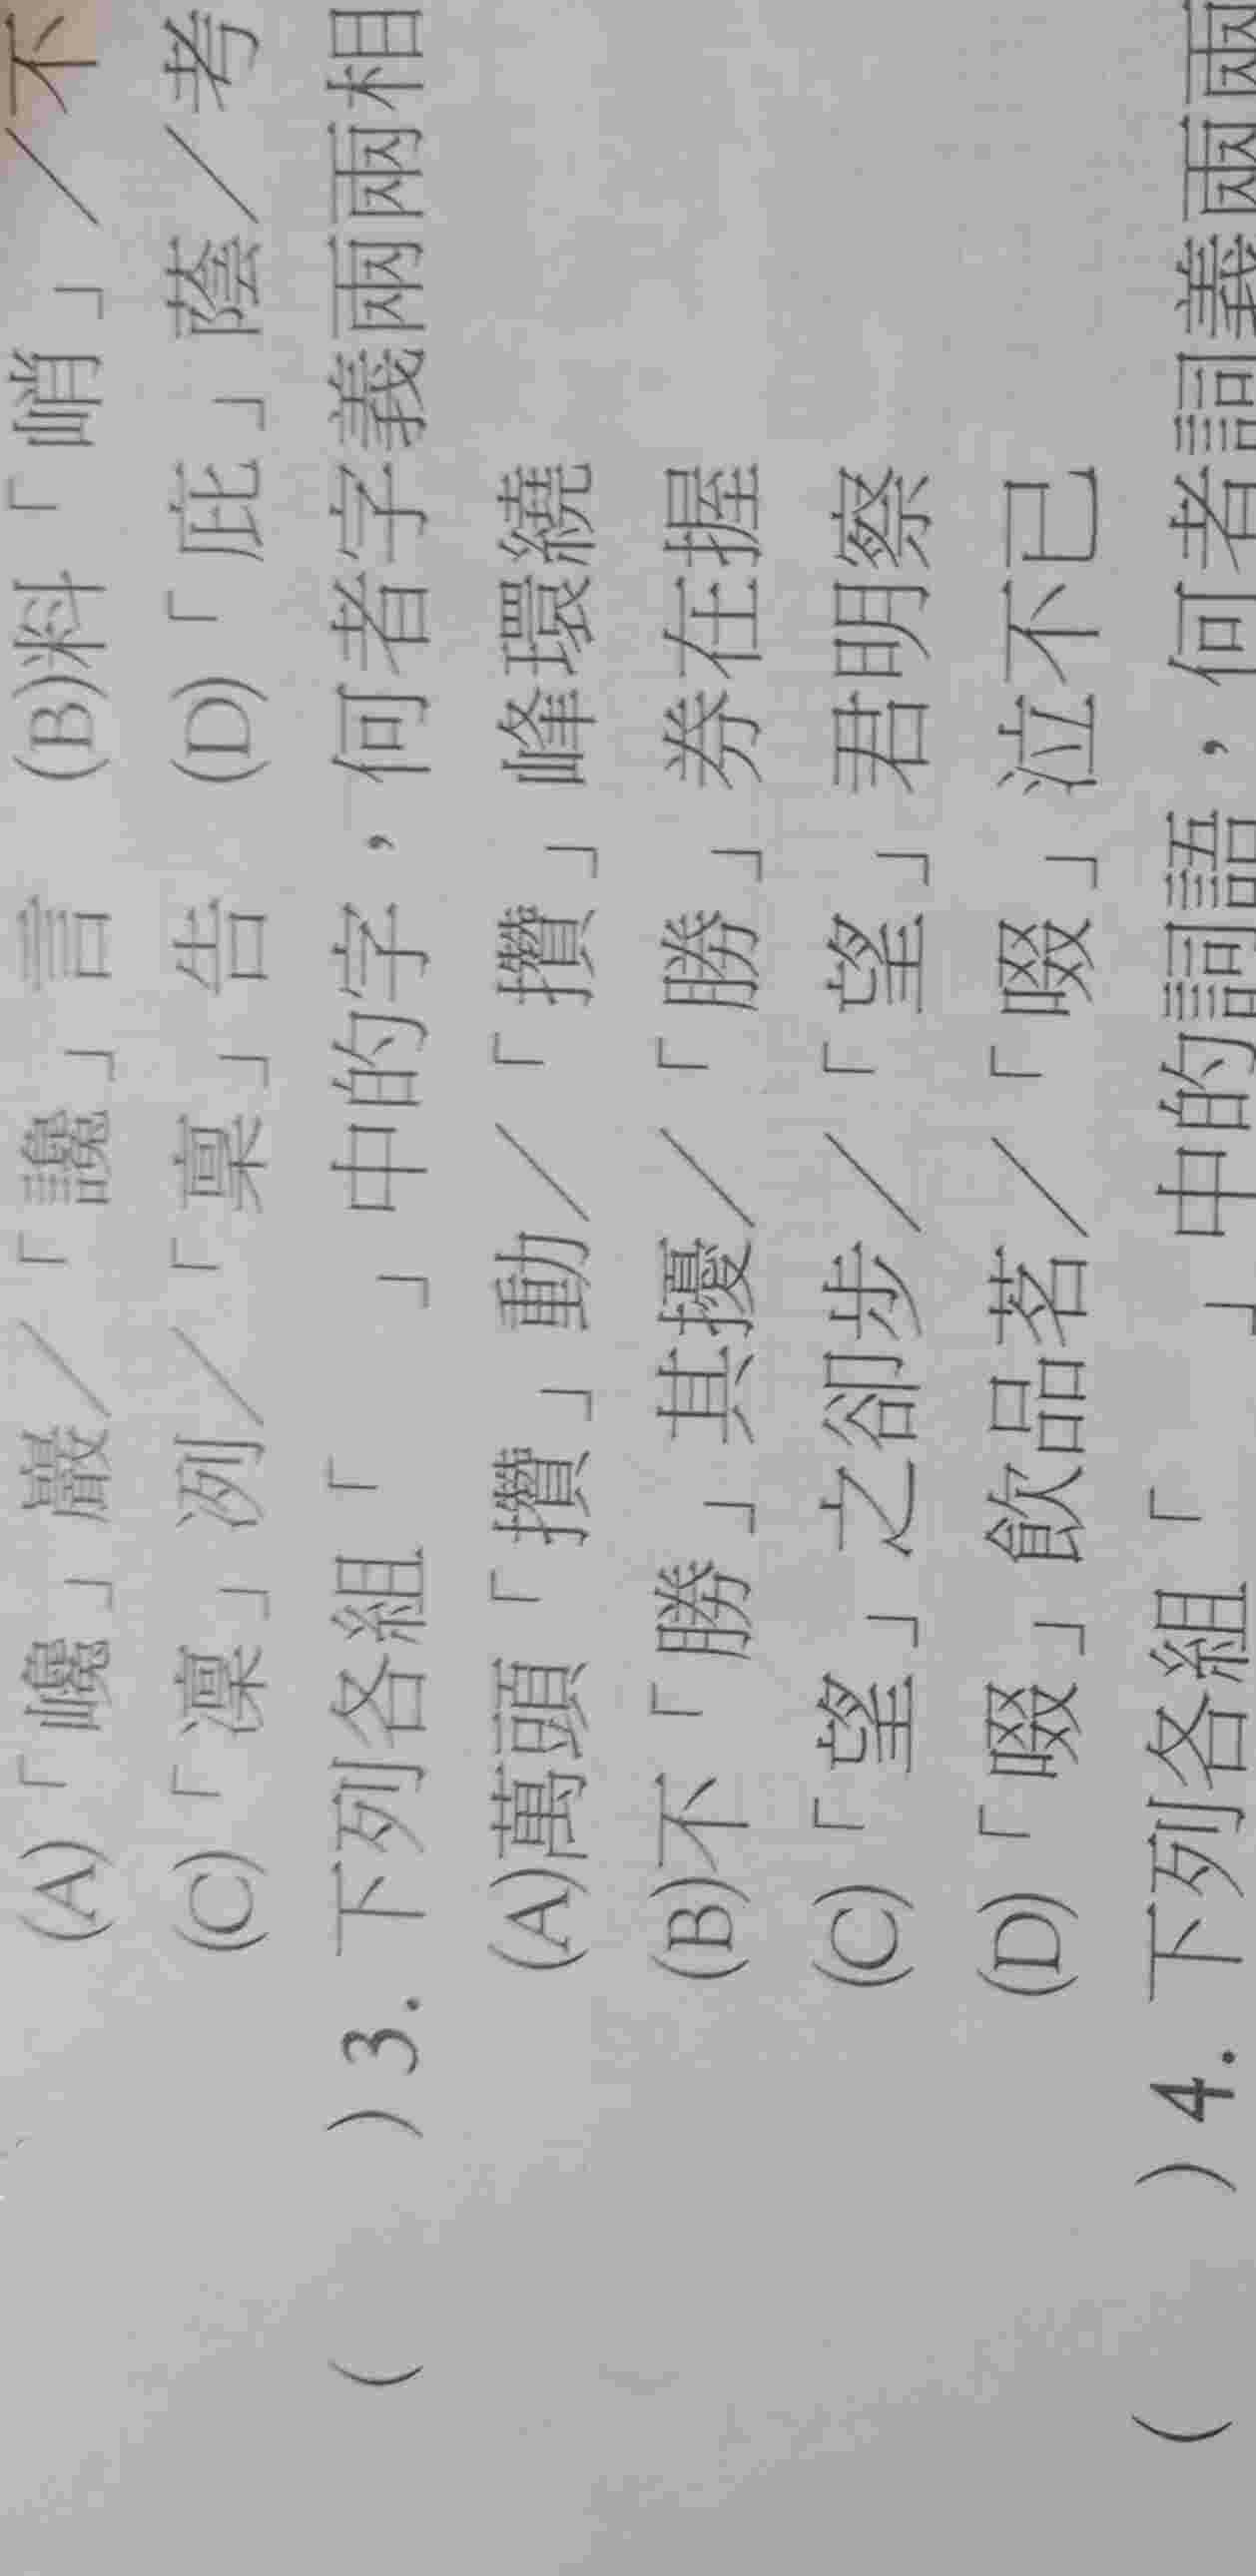 (A)「巉」巖/「讒」言 (B)料「峭」/不
(C)「凜」冽/「稟」告 (D)「庇」蔭/考
( )3. 下列各組「 」中的字,何者字義兩兩相
(A)萬頭「攢」動/「攢」峰環繞
(B)不「勝」其擾/「勝」券在握
(C)「望」之卻步/「望」君明察
(D)「啜」飲品茗/「啜」泣不已
( )4. 下列各組「 」中的詞語,何者詞義兩兩